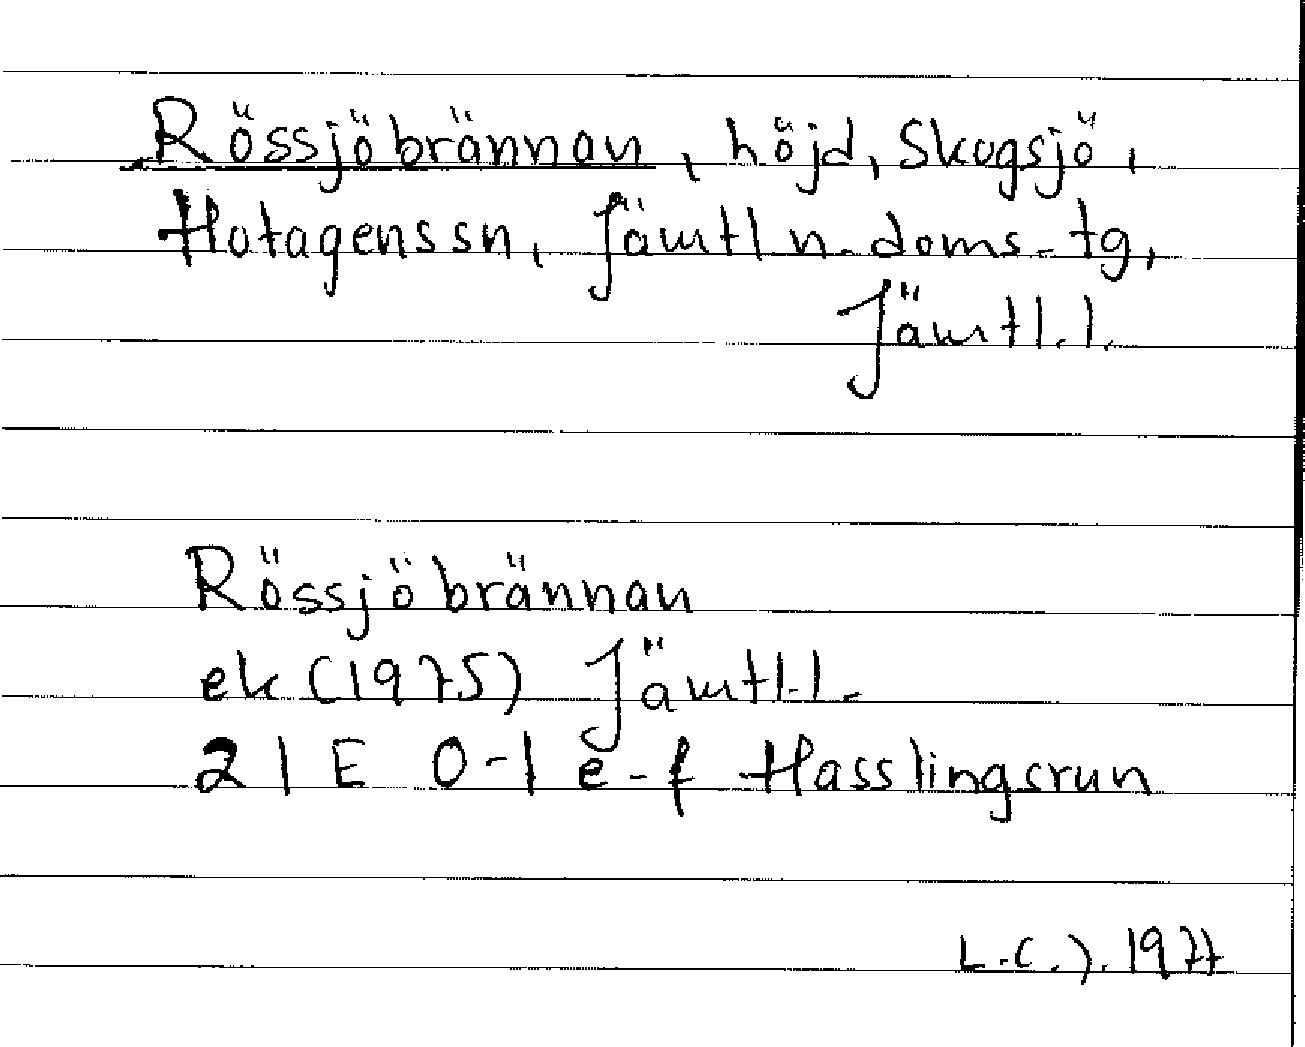 Rössjöbrännan, höjd, Skogsjö,
Hotagens sn, Jämtl n. doms. tg,
Jämtl. l.
Rössjöbrännan
ek (1975) Jämtl. l.
21 E 0-1 e-f Hasslingsrun
L.C.J. 1977